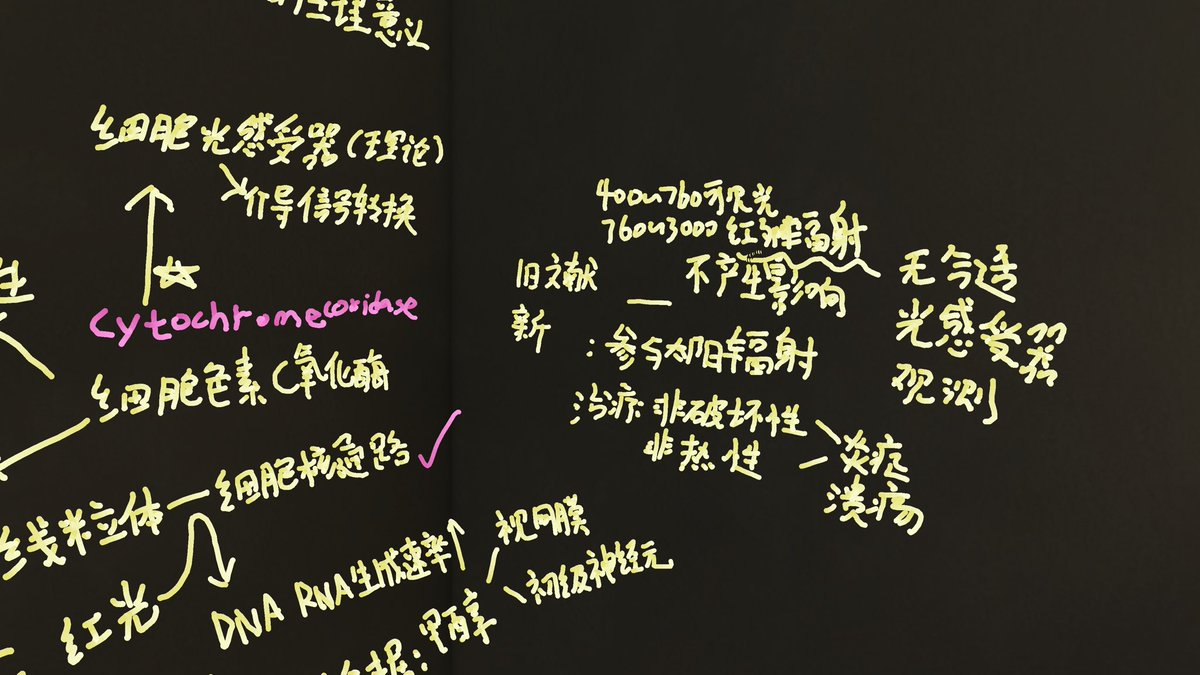 生理意义
细胞光感受器(理论)
介导信号转换
性
Cytochrome coxidase
细胞色素C氧化酶
线粒立体 — 细胞核通路
红光
DNA RNA生成速率
:甲醇
视网膜
初级神经元
400~760可见光
760~3000 红外辐射
旧文献 — 不产生影响
新
:参与太阳辐射
治疗: 非破坏性
非热性
炎症
溃疡
无合适
光感受器
观测